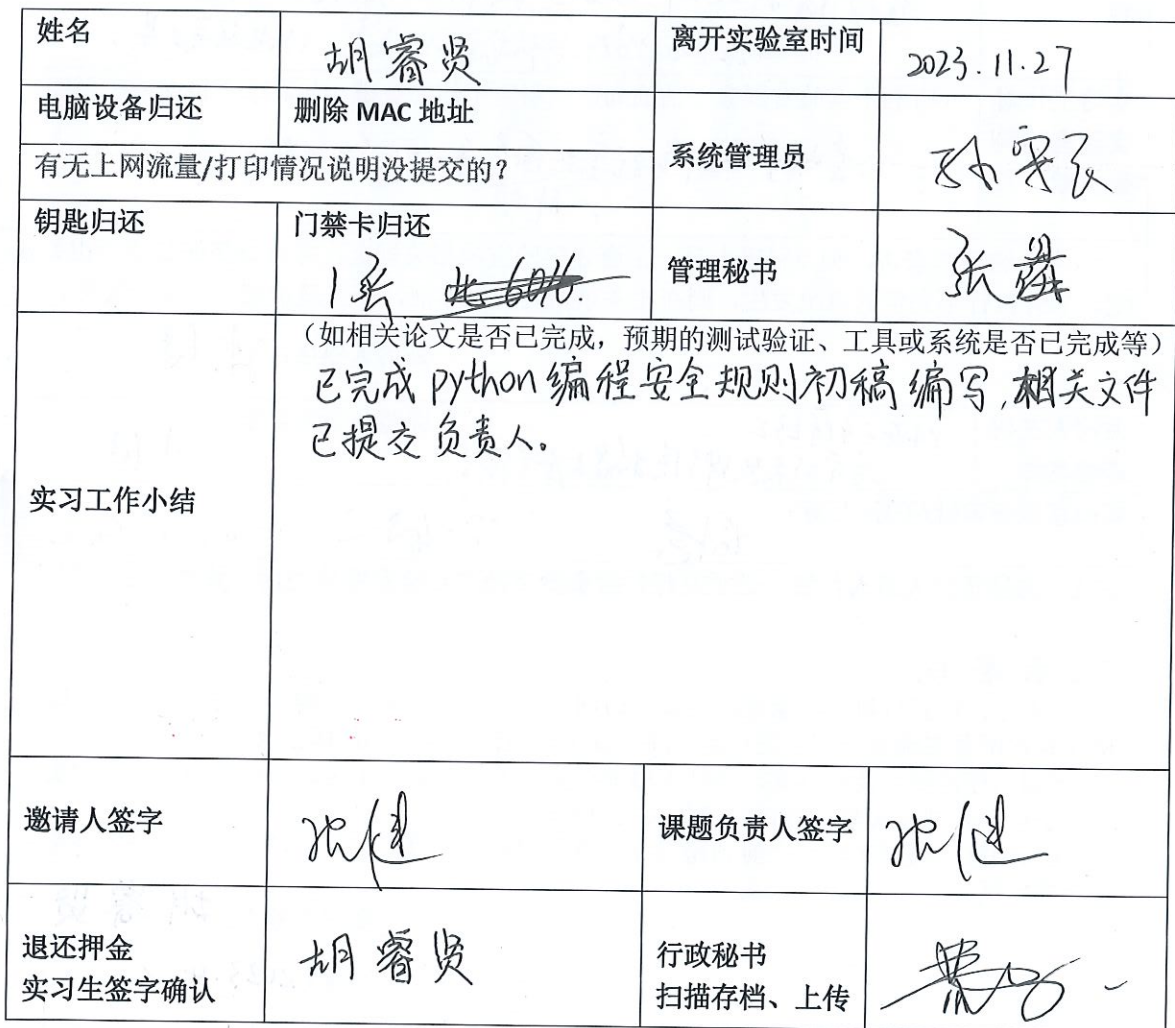 姓名
胡睿贤
离开实验室时间
2023.11.27
电脑设备归还
删除 MAC 地址
系统管理员
有无上网流量/打印情况说明没提交的?
钥匙归还
门禁卡归还
1张
管理秘书
张
(如相关论文是否已完成,预期的测试验证、工具或系统是否已完成等)
已完成 python 编程安全规则初稿编写,相关文件
已提交负责人。
实习工作小结
邀请人签字
张健
课题负责人签字
张健
退还押金
实习生签字确认
胡睿贤
行政秘书
扫描存档、上传